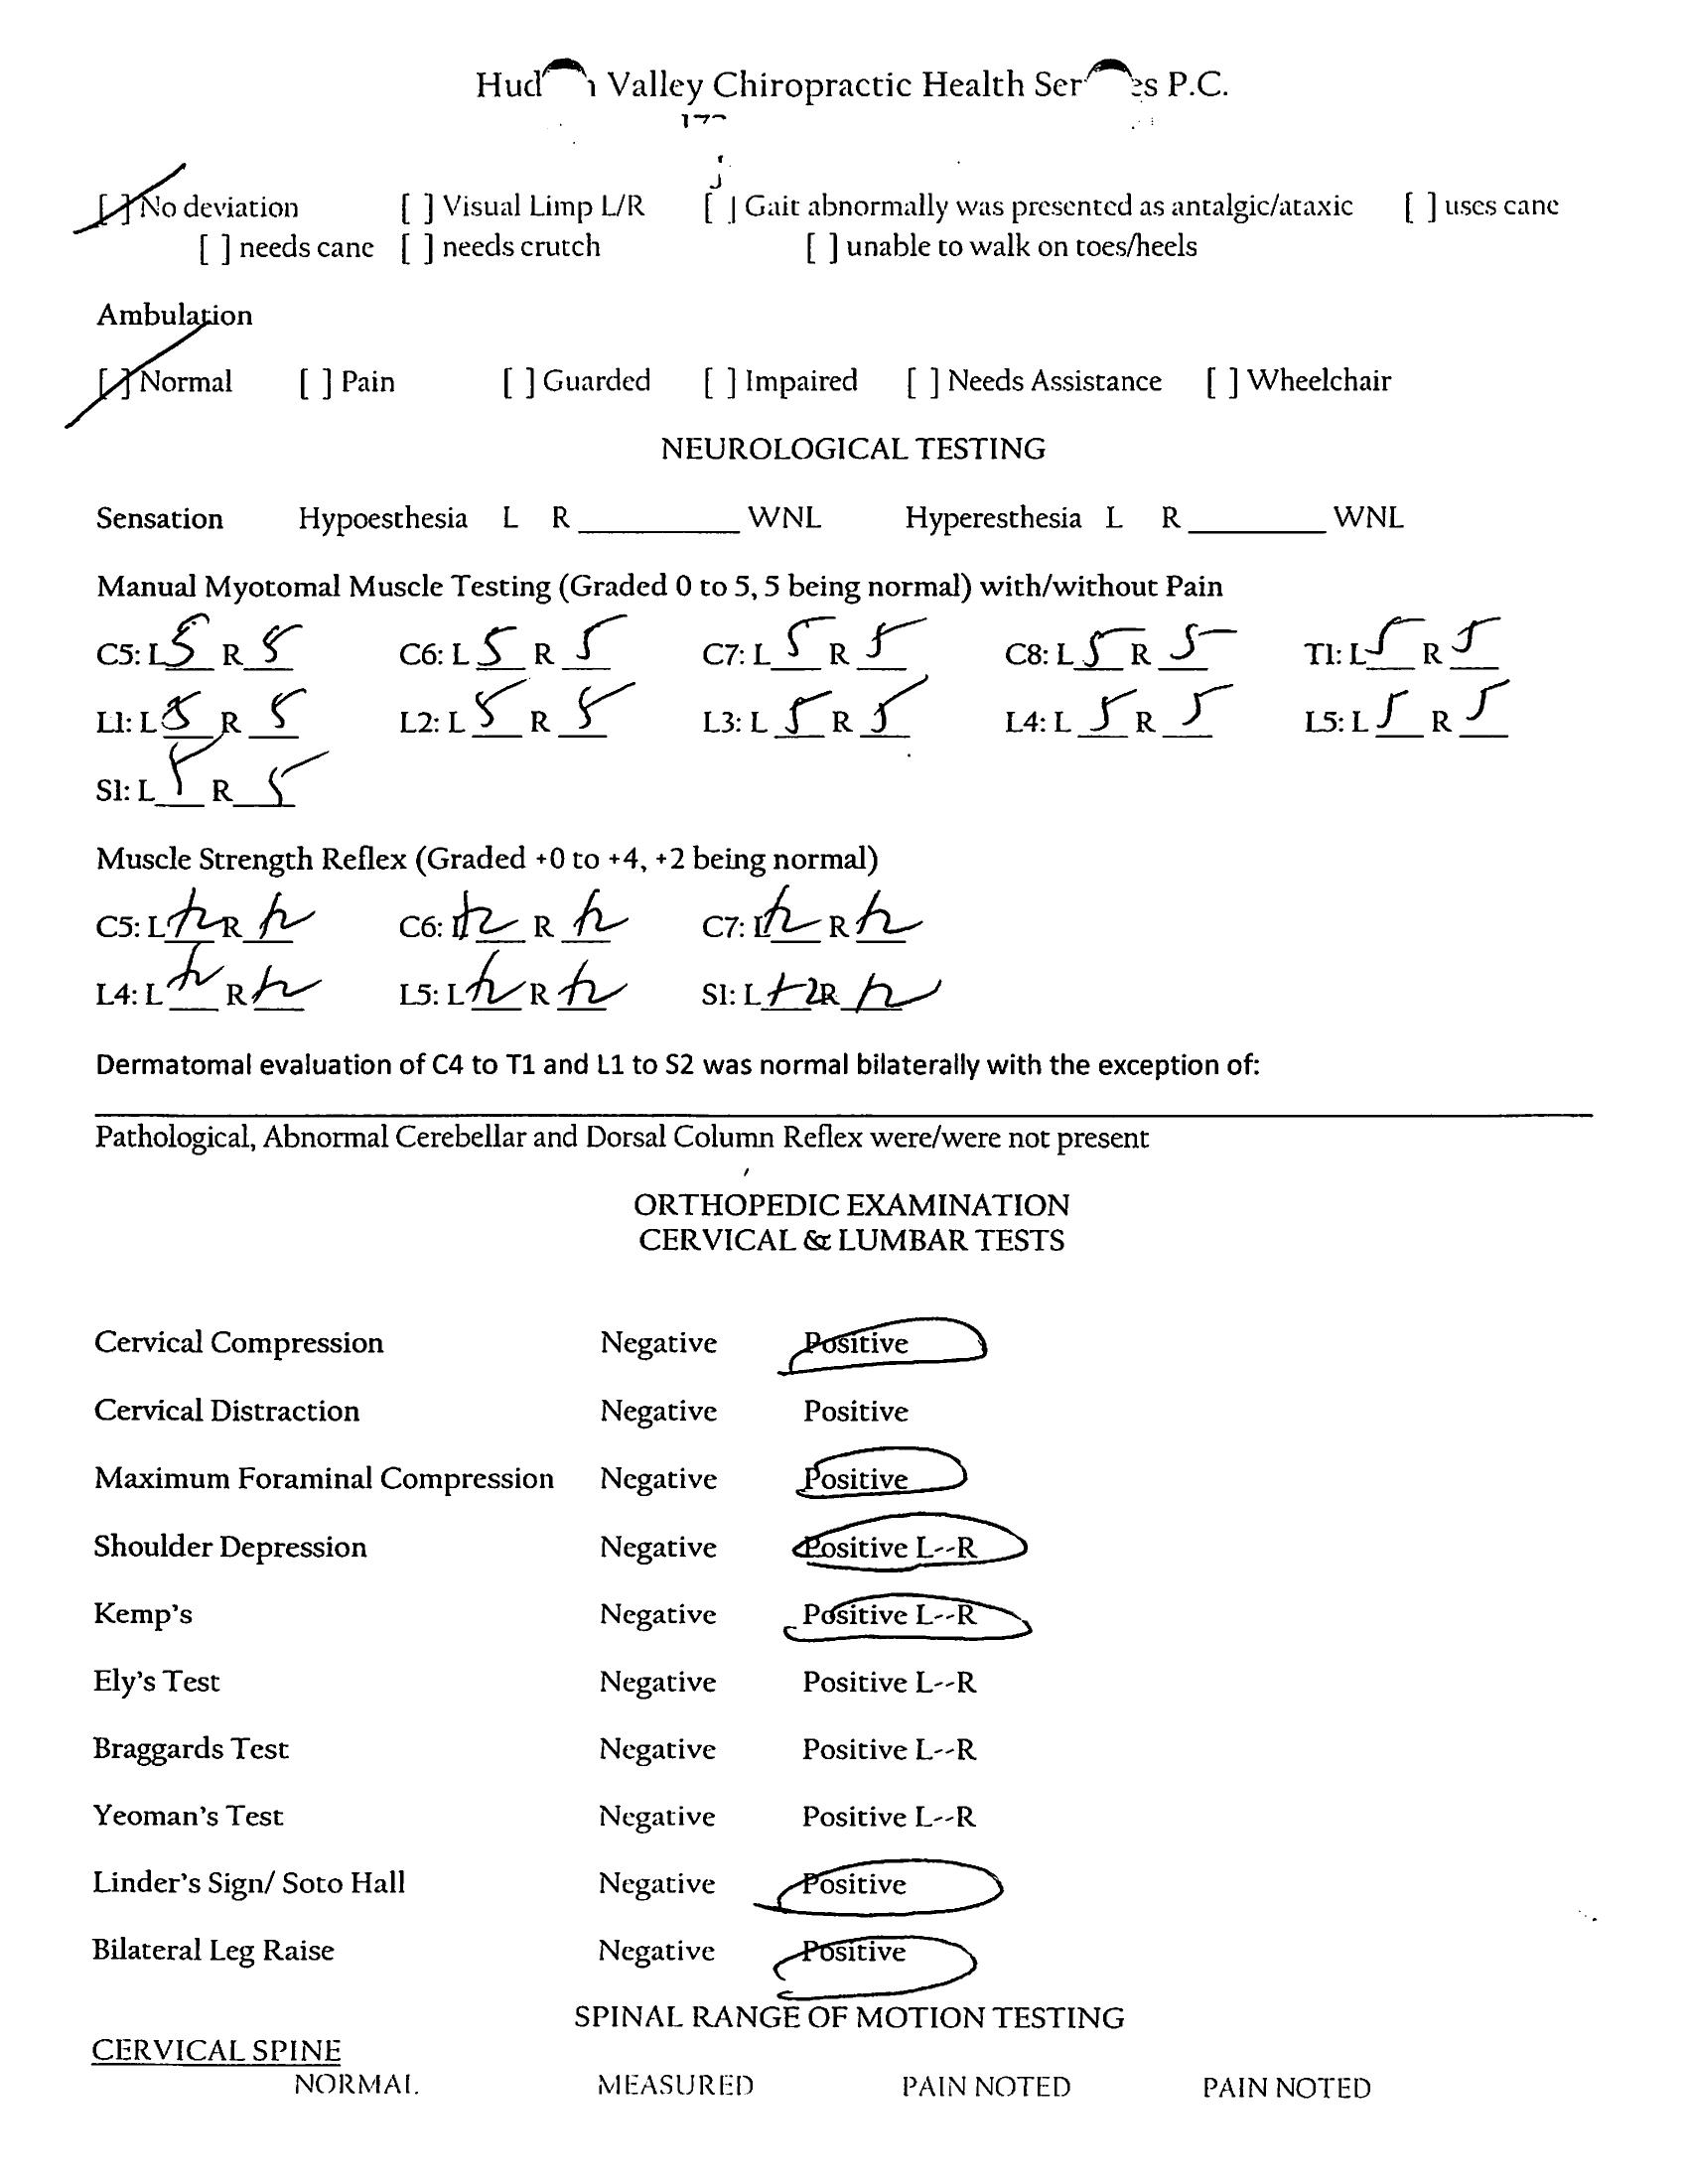 Hud n Valley Chiropractic Health Ser es P.C.
[ ] No deviation [ ] Visual Limp L/R [ ] Gait abnormally was presented as antalgic/ataxic [ ] uses cane
[ ] needs cane [ ] needs crutch [ ] unable to walk on toes/heels
Ambulation
[ ] Normal [ ] Pain [ ] Guarded [ ] Impaired [ ] Needs Assistance [ ] Wheelchair
NEUROLOGICAL TESTING
Sensation Hypoesthesia L R__________ WNL Hyperesthesia L R__________ WNL
Manual Myotomal Muscle Testing (Graded 0 to 5, 5 being normal) with/without Pain
C5: L 5 R 5 C6: L 5 R 5 C7: L 5 R 5 C8: L 5 R 5 T1: L 5 R 5
L1: L 5 R 5 L2: L 5 R 5 L3: L 5 R 5 L4: L 5 R 5 L5: L 5 R 5
S1: L 5 R 5
Muscle Strength Reflex (Graded +0 to +4, +2 being normal)
C5: L +2 R +2 C6: L +2 R +2 C7: L +2 R +2
L4: L +2 R +2 L5: L +2 R +2 S1: L +2 R +2
Dermatomal evaluation of C4 to T1 and L1 to S2 was normal bilaterally with the exception of:
Pathological, Abnormal Cerebellar and Dorsal Column Reflex were/were not present
ORTHOPEDIC EXAMINATION
CERVICAL & LUMBAR TESTS
Cervical Compression Negative Positive
Cervical Distraction Negative Positive
Maximum Foraminal Compression Negative Positive
Shoulder Depression Negative Positive L--R
Kemp's Negative Positive L--R
Ely's Test Negative Positive L--R
Braggards Test Negative Positive L--R
Yeoman's Test Negative Positive L--R
Linder's Sign/ Soto Hall Negative Positive
Bilateral Leg Raise Negative Positive
SPINAL RANGE OF MOTION TESTING
CERVICAL SPINE
NORMAL MEASURED PAIN NOTED PAIN NOTED